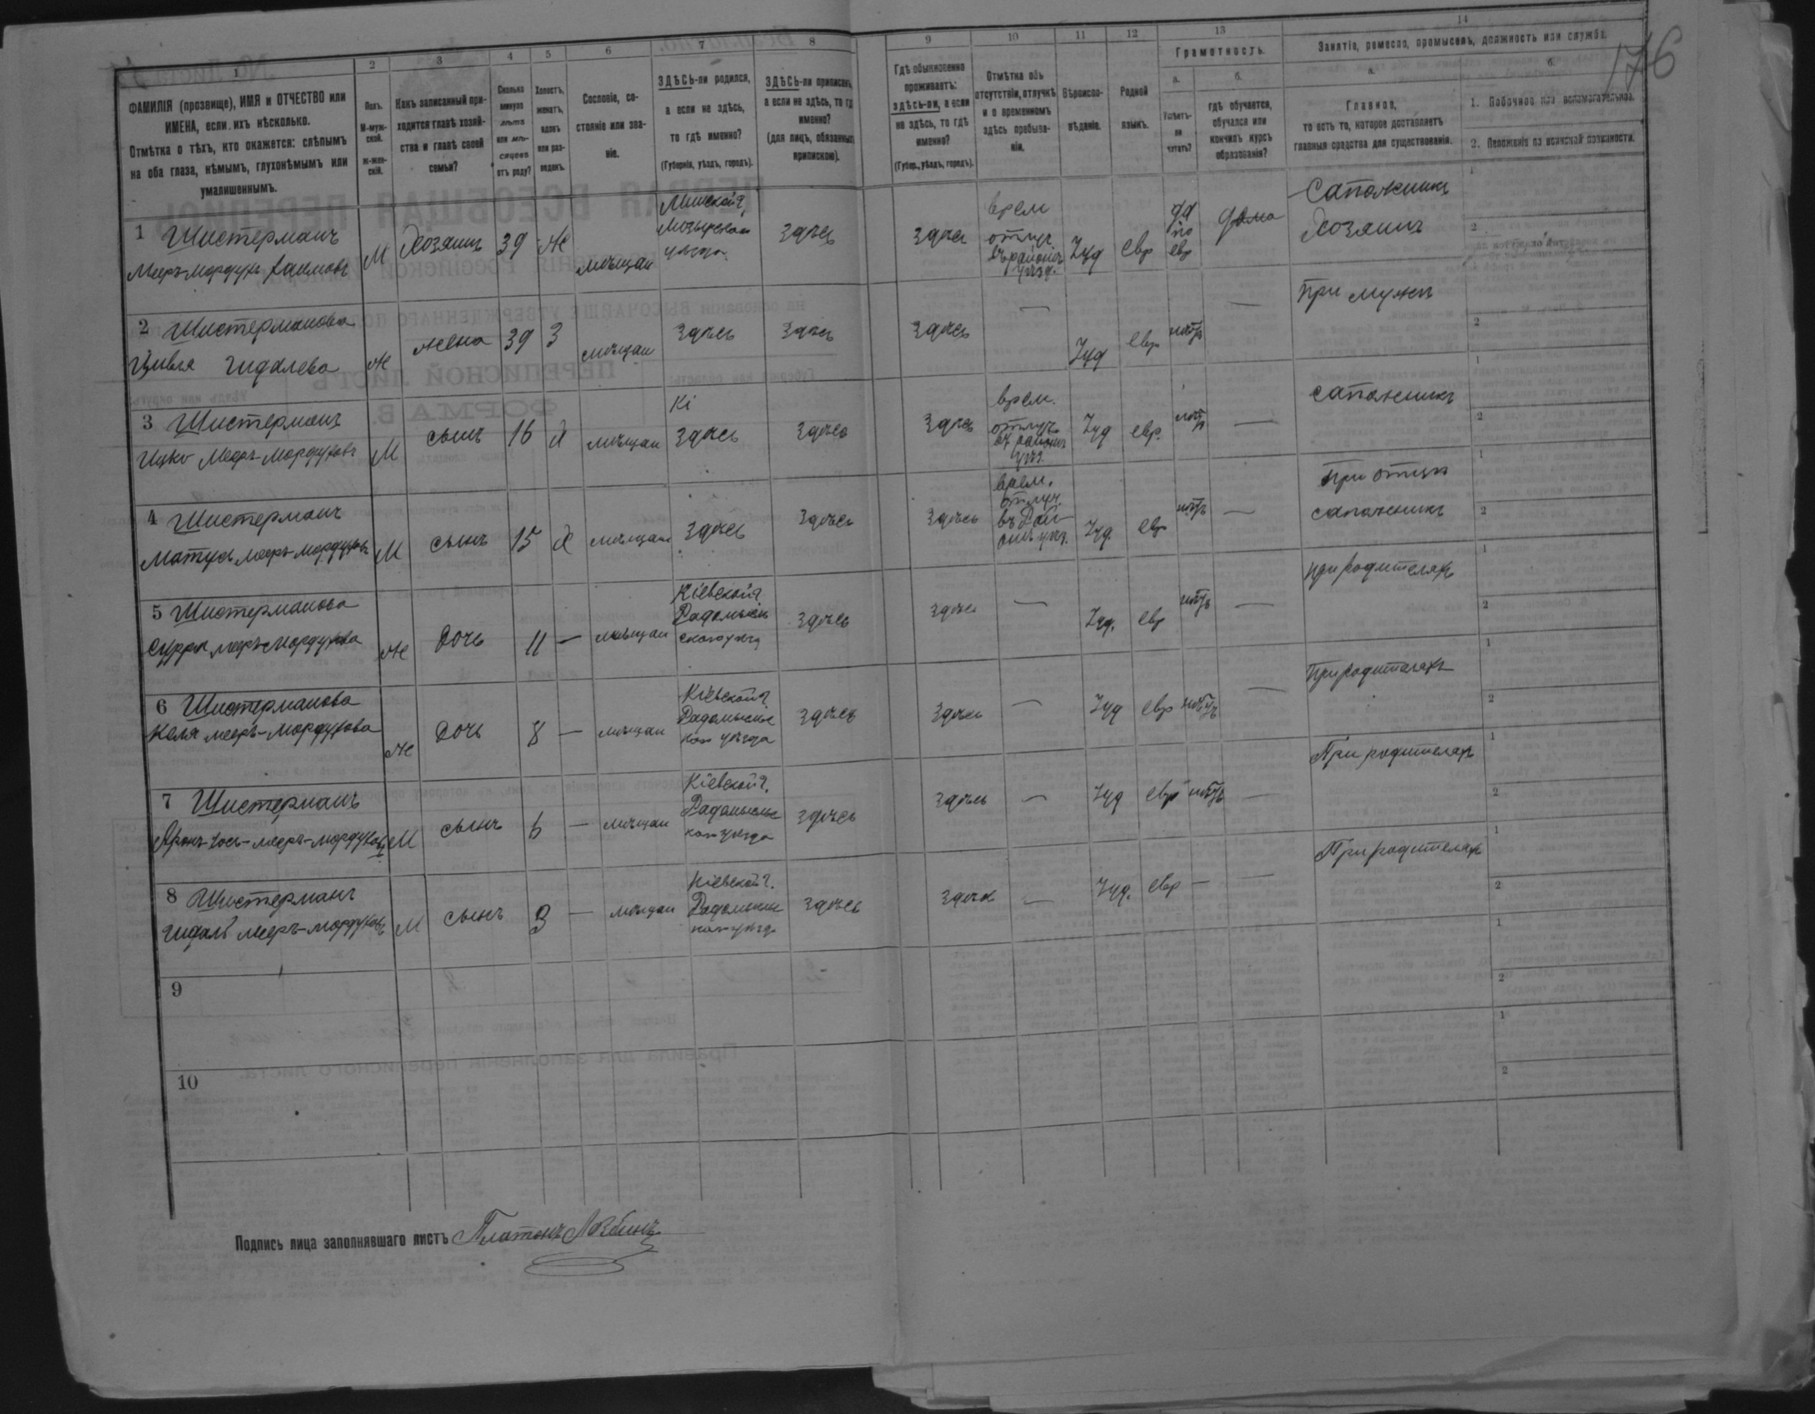 176
1 2 3 4 5 6 7 8 9 10 11 12 13 14
ФАМИЛІЯ (прозвище), ИМЯ и ОТЧЕСТВО или
ИМЕНА, если ихъ нѣсколько.
Отмѣтка о тѣхъ, кто окажется: слѣпымъ
на оба глаза, нѣмымъ, глухонѣмымъ или
умалишеннымъ.
Полъ.
М-муж-
ской.
Ж-жен-
скій.
Какъ записанный при-
ходится главѣ хозяй-
ства и главѣ своей
семьи?
Сколько
минуло
лѣтъ
или мѣ-
сяцевъ
отъ роду?
Холостъ,
женатъ,
вдовъ
или раз-
веденъ.
Сословіе, со-
стояніе или зва-
ніе.
ЗДѢСЬ-ли родился,
а если не здѣсь,
то гдѣ именно?
(Губернія, уѣздъ, городъ).
ЗДѢСЬ-ли приписанъ,
а если не здѣсь, то гдѣ
именно?
(для лицъ, обязанныхъ
припискою).
Гдѣ обыкновенно
проживаетъ:
здѣсь-ли, а если
не здѣсь, то гдѣ
именно?
(Губер., уѣздъ, городъ).
Отмѣтка объ
отсутствіи, отлучкѣ
и о временномъ
здѣсь пребыва-
ніи.
Вѣроиспо-
вѣданіе.
Родной
языкъ.
Грамотность.
а.
Умѣетъ-
ли
читать?
б.
гдѣ обучается,
обучался или
кончилъ курсъ
образованія?
Занятіе, ремесло, промыселъ, должность или служба.
а.
Главное,
то есть то, которое доставляетъ
главныя средства для существованія.
б.
1. Побочное или вспомогательное.
2. Положеніе по воинской повинности.
1 Шистерманъ
Мееръ-Мордухъ М Хозяинъ 39 Ж мѣщан
Минской г.
Мозырскаго
уѣзда
здѣсь здѣсь
врем
отлуч.
Іуд евр
да
по
евр
дома
Сапожникъ
Хозяинъ
2 Шистерманова
Цивля Гидалева Ж жена 39 З мѣщан здѣсь здѣсь здѣсь — Іуд евр нѣтъ — При мужѣ
3 Шистерманъ
Ицко Мееръ-Мордуховъ М сынъ 16 Х мѣщан
Кі
здѣсь здѣсь здѣсь
врем.
отлуч.
Іуд евр. нѣтъ — сапожникъ
4 Шистерманъ
Матусъ Мееръ-Мордуховъ М сынъ 15 Х мѣщан здѣсь здѣсь здѣсь
врем.
отлуч.
Іуд. евр нѣтъ —
При отцѣ
сапожникъ
5 Шистерманова
Сурра Мееръ-Мордухова Ж Дочь 11 — мѣщан
Кіевской г.
Радомысль
скаго уѣзд
здѣсь здѣсь — Іуд. евр нѣтъ — При родителяхъ
6 Шистерманова
Хеля Мееръ-Мордухова Ж Дочь 8 — мѣщан
Кіевской г.
Радомысльс
каго уѣзда
здѣсь здѣсь — Іуд евр нѣтъ — При родителяхъ
7 Шистерманъ
Мееръ-Мордуховъ М сынъ 6 — мѣщан
Кіевской г.
Радомысльс
каго уѣзда
здѣсь здѣсь — Іуд евр нѣтъ — При родителяхъ
8 Шистерманъ
Гидаль Мееръ-Мордуховъ М сынъ 3 — мѣщан
Кіевской г.
Радомысльс
каго уѣзд
здѣсь здѣсь — Іуд. евр — — При родителяхъ
9
10
Подпись лица заполнявшаго листъ Платонъ